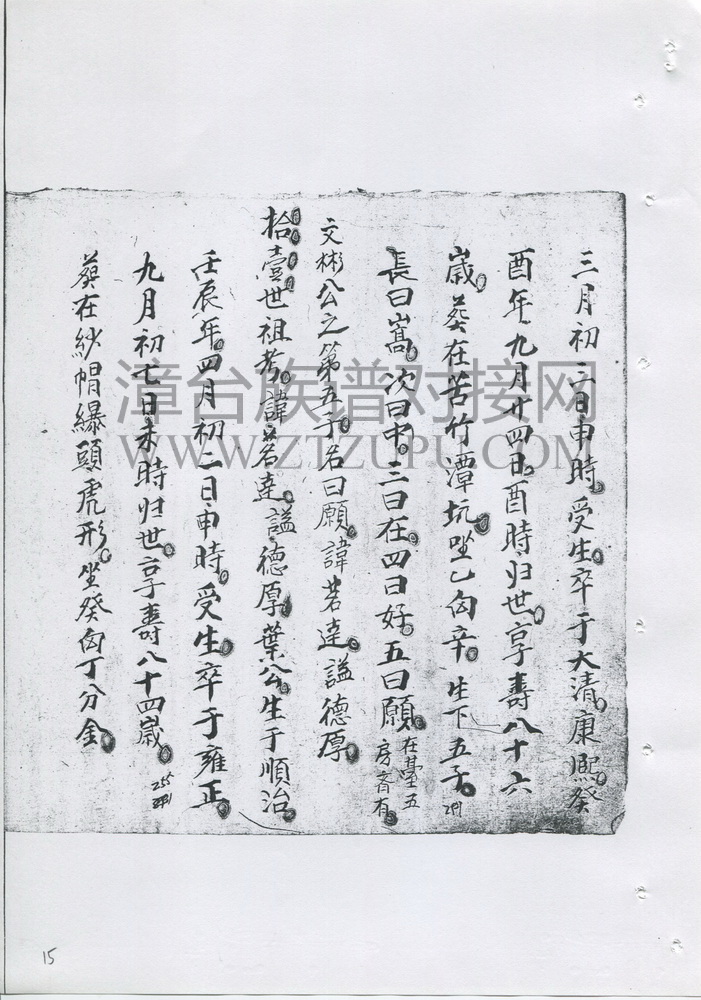 三月初三日申時受生卒于大清康熙癸
酉年九月廿四日酉時归世享壽八十六
歲葵在苦竹潭坑坐乙向辛生下五子
長曰嵩次曰中三曰在四曰好五曰願在臺五房斉有
文彬公之第五子名曰願諱若達謚德厚
拾壹世祖考諱若達謚德厚葉公生于順治
壬辰年四月初二日申時受生卒于雍正
九月初七日未時归世享壽八十四歲
葵在紗帽纀頭虎形坐癸向丁分金
漳台族谱对接网
WWW.ZTZUPU.COM
15